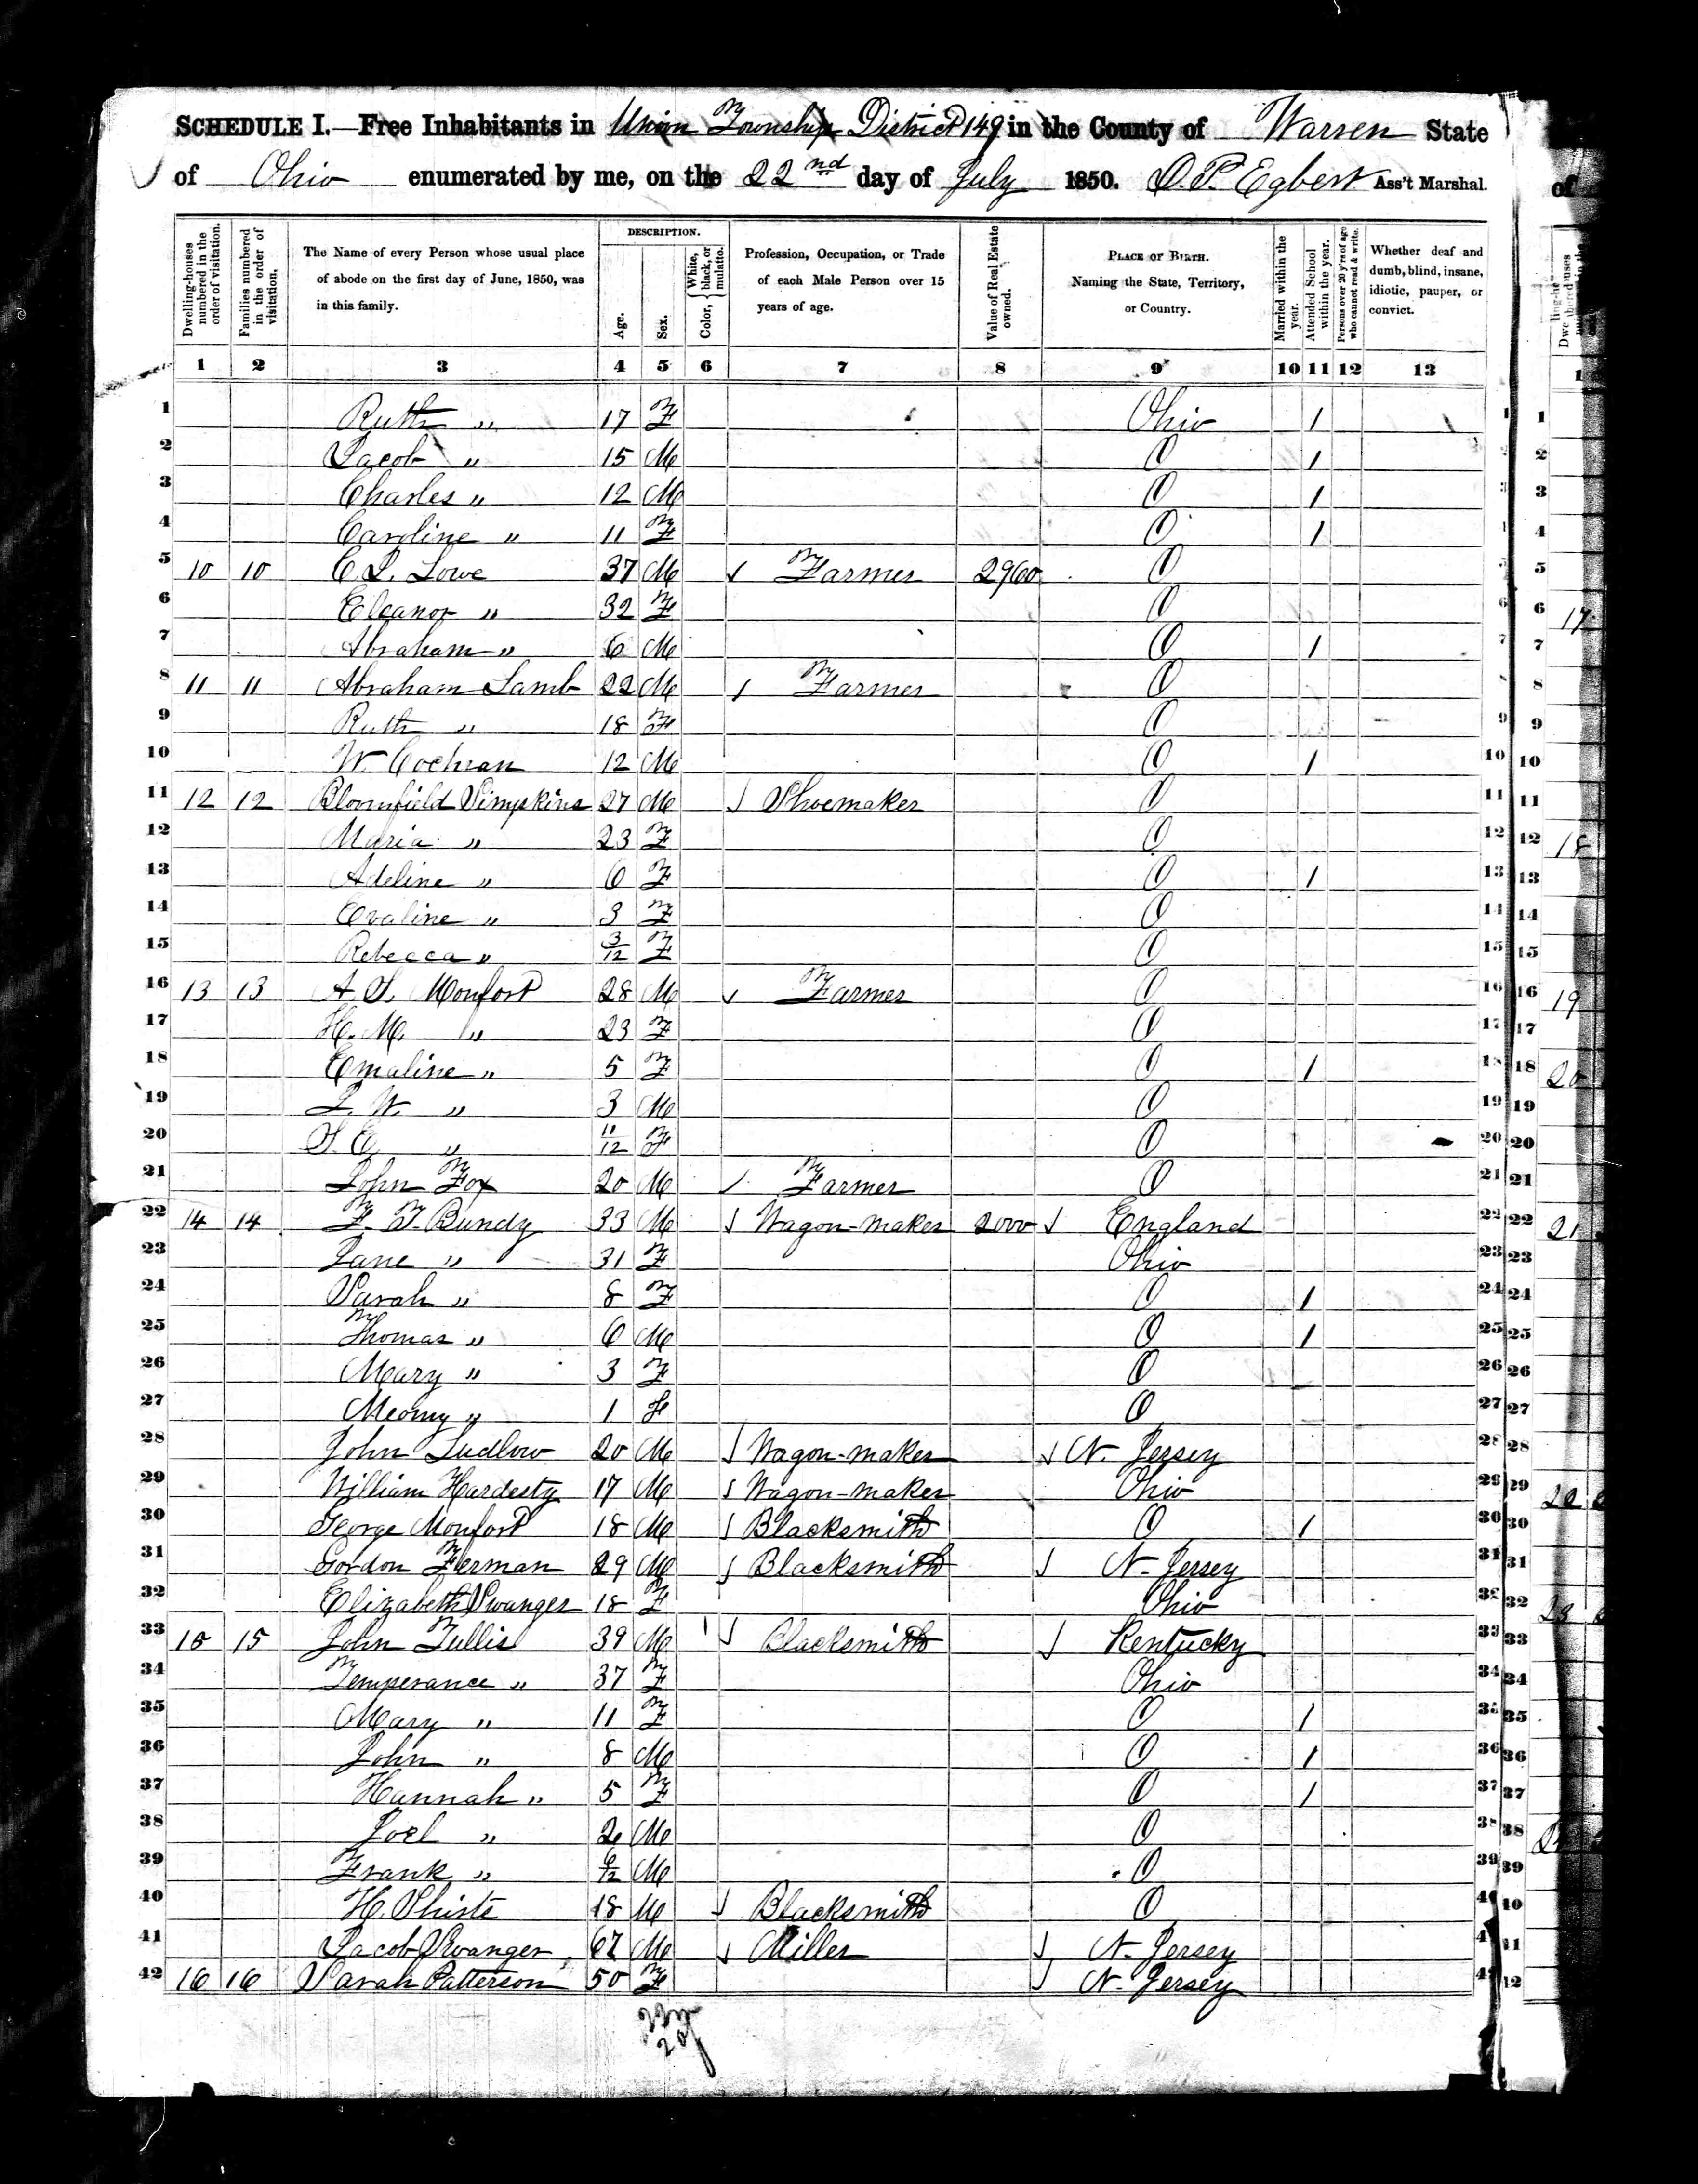 SCHEDULE I.—Free Inhabitants in Union Township District 149 in the County of Warren State
of Ohio enumerated by me, on the 22nd day of July 1850. O. P. Egbert Ass't Marshal.
Dwelling-houses numbered in the order of visitation.
Families numbered in the order of visitation.
The Name of every Person whose usual place of abode on the first day of June, 1850, was in this family.
DESCRIPTION.
Age.
Sex.
Color, { White, black, or mulatto.
Profession, Occupation, or Trade of each Male Person over 15 years of age.
Value of Real Estate owned.
PLACE OF BIRTH. Naming the State, Territory, or Country.
Married within the year.
Attended School within the year.
Persons over 20 y'rs of age who cannot read & write.
Whether deaf and dumb, blind, insane, idiotic, pauper, or convict.
1 2 3 4 5 6 7 8 9 10 11 12 13
1 Ruth " 17 F Ohio 1 1
2 Jacob " 15 M O 1 2
3 Charles " 12 M O 1 3
4 Caroline " 11 F O 1 4
5 10 10 C. L. Lowe 37 M Farmer 2960 O 5
6 Eleanor " 32 F O 6
7 Abraham " 6 M O 1 7
8 11 11 Abraham Lamb 22 M Farmer O 8
9 Ruth " 18 F O 9
10 W. Cochran 12 M O 1 10
11 12 12 Bloomfield Simpkins 27 M Shoemaker O 11
12 Maria " 23 F O 12
13 Adeline " 6 F O 1 13
14 Evaline " 3 F O 14
15 Rebecca " 3/12 F O 15
16 13 13 A. S. Monfort 28 M Farmer O 16
17 H. M. " 23 F O 17
18 Emaline " 5 F O 1 18
19 L. W. " 3 M O 19
20 S. E. " 11/12 F O 20
21 John Fox 20 M Farmer O 21
22 14 14 F. T. Bundy 33 M Wagon-maker 2000 England 22
23 Jane " 31 F Ohio 23
24 Sarah " 8 F O 1 24
25 Thomas " 6 M O 1 25
26 Mary " 3 F O 26
27 Meomy " 1 F O 27
28 John Ludlow 20 M Wagon-maker N. Jersey 28
29 William Hardesty 17 M Wagon-maker Ohio 29
30 George Monfort 18 M Blacksmith O 1 30
31 Gordon Ferman 29 M Blacksmith N. Jersey 31
32 Elizabeth Swanger 18 F Ohio 32
33 15 15 John Tullis 39 M Blacksmith Kentucky 33
34 Temperance " 37 F Ohio 34
35 Mary " 11 F O 1 35
36 John " 8 M O 1 36
37 Hannah " 5 F O 1 37
38 Joel " 2 M O 38
39 Frank " 6/12 M O 39
40 H. Shiste 18 M Blacksmith O
41 Jacob Swanger 67 M Miller N. Jersey
42 16 16 Sarah Patterson 50 F N. Jersey